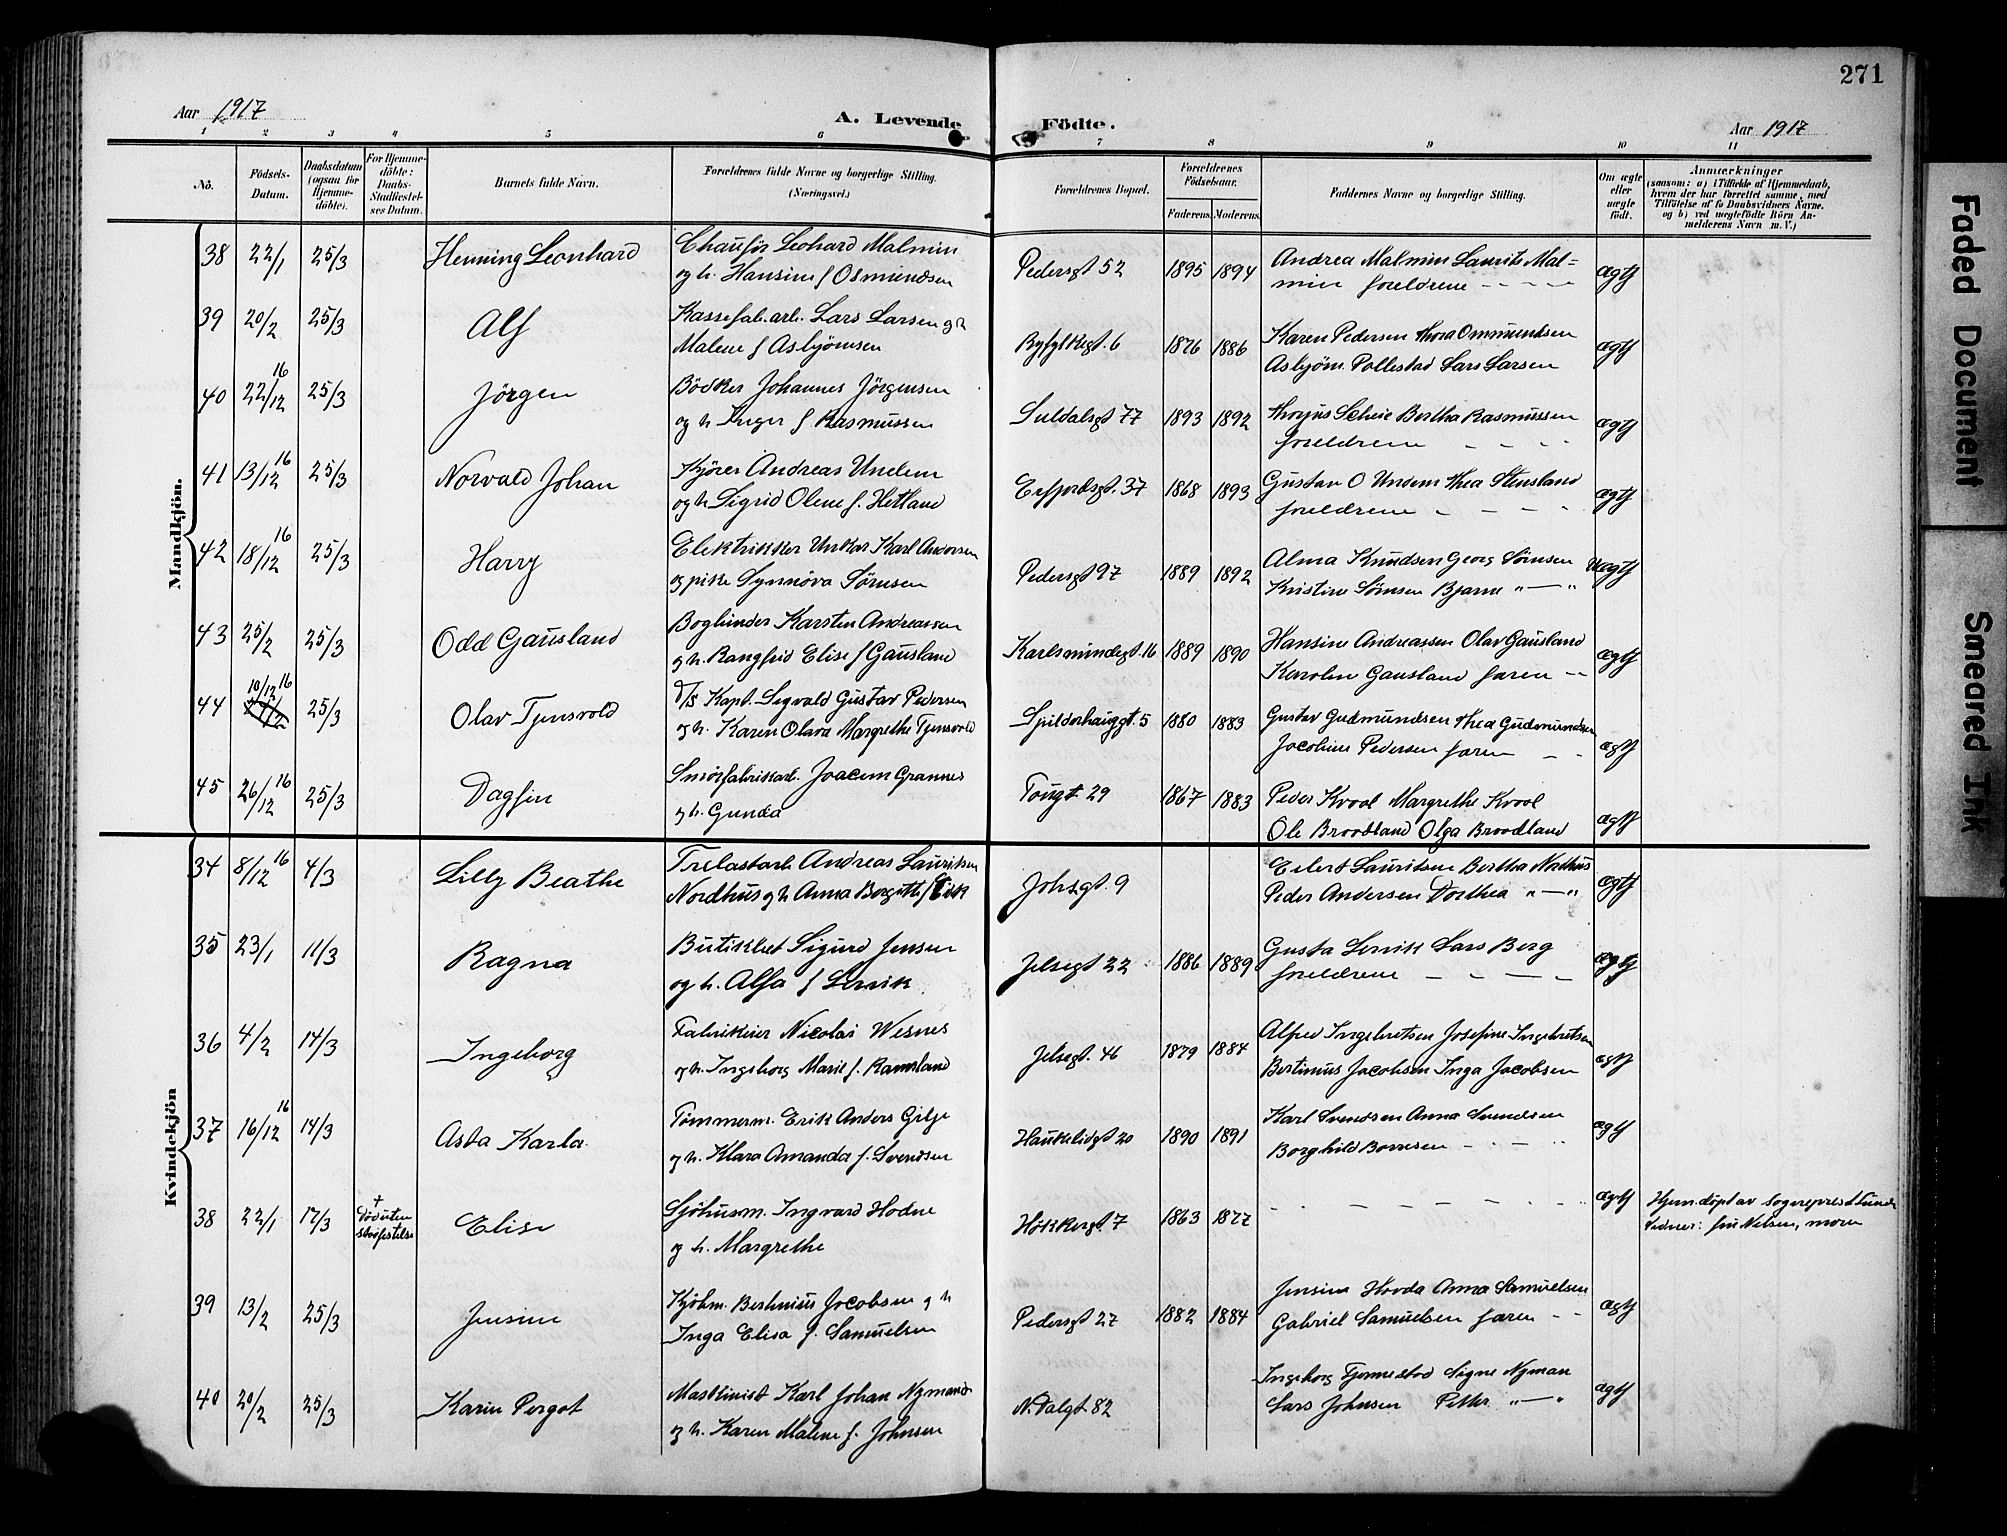 271
Aar 1917
A. Levende
Födte.
Aar 1917
1 2 3 4 5 6 7 8 9 10 11
No.
Födsels-Datum.
Daabsdatum (ogsaa for Hjemme-döbte).
For Hjemme-döbte: Daabs-Stadfæstel-ses Datum.
Barnets fulde Navn.
Forældrenes fulde Navne og borgerlige Stilling. (Næringsvei.)
Forældrenes Bopæl.
Forældrenes Födselsaar.
Faderens. Moderens.
Faddernes Navne og borgerlige Stilling.
Om ægte eller uægte födt.
Anmærkninger
(saasom: a) i Tilfælde af Hjemmedaab, hvem der har forrettet samme, med Tilföielse af to Daabsvidners Navne, og b) ved uægtefödte Börn An-melderens Navn m. V.)
Mandkjön.
38 22/1 25/3 Henning Leonhard Chaufør Leohard Malmin
og h. Hansine f Osmundsen Pedersgt 52 1895 1894 Andrea Malmin Laurits Mal=
min foreldrene - - - - ægtf
39 20/2 25/3 Alf Kassefab.arb. Lars Larsen og h
Malene f Asbjörnsen Ryfylkegt. 6 1876 1886 Karen Pedersen Thora Ommundsen
Asbjörn Pollestad Lars Larsen ægtf
40 22/12 16 25/3 Jörgen Bödker Johannes Jörgensen
og h Inger f Rasmussen Suldalsgt 77 1893 1892 Bertha Rasmussen
foreldrene - - - - ægtf
41 13/12 16 25/3 Norvald Johan Kjörer Andreas Undem
og h Sigrid Olene f. Hetland Erfjordsgt. 37 1868 1893 Gustav O Undem Thea Stensland
foreldrene - - - - ægtf
42 18/12 16 25/3 Harry Elektrikker Unkar Karl Andersen
og pike Synnöva Sörnsen Pedersgt 97 1889 1892 Alma Knudsen Georg Sörnsen
Kristine Sörnsen Bjarne " — " uægtf
43 25/2 25/3 Odd Gausland Bogbinder Karsten Andreassen
og h. Rangfrid Elise f Gausland Karlsmindegt. 16 1889 1890 Hansine Andreassen Olav Gausland
Karolin Gausland faren - - ægtf
44 10/12 16 25/3 Olav Tjensvold D/S Kapt. Sigvald Gustav Pedersen
og h. Karen Olava Margrethe Tjensvold Spilderhauggt. 5 1880 1883 Gustav Gudmundsen Thea Gudmundsen
Jacobine Pedersen faren - - ægtf
45 26/12 16 25/3 Dagfin Smörfabrikkarb. Joacim Grannes
og h. Gunda Tougt 29 1867 1883 Peder Kvool Margrethe Kvool
Ole Broodland Olga Broodland ægtf
Kvindekjön
34 8/12 16 4/3 Lilly Beathe Trelastarb Andreas Lauritsen
Nordhus og h Anna Bergitte f Eik Johsgt. 9 Eilert Lauritsen Bertha Nordhus
Peder Andersen Dorthea " — " ægtf
35 23/1 11/3 Ragna Butikbet Sigurd Jensen
og h. Alfa f Lervik Jelsegt 22 1886 1889 Gusta Lervik Lars Berg
foreldrene - - — - ægtf
36 4/2 14/3 Ingeborg Fabrikeier Nicolai Wesnes
og h. Ingeborg Marie f. Ramsland Jelsegt. 46 1879 1884 Alfred Ingebretsen Josefine Ingebretsen
Bertinius Jacobsen Inga Jacobsen ægtf
37 16/12 16 14/3 Asta Karla Tömmerm. Erik Anders Gilje
og h. Klara Amanda f. Svendsen Haukelidgt 20 1890 1891 Karl Svendsen Anna Svendsen
Borghild - - - ægtf
38 22/1 17/3 † Död uten
stadfestelse Elise Sjöhusm. Ingvard Hodne
og h. Margrethe Høkkergt 7 1863 1877 - - — - - - ægtf Hjem.döpt av sogneprest Lunde
fru Nelsen, moren
39 13/2 25/3 Jensine Kjöbm. Bertinius Jacobsen og h
Inga Elisa f. Samuelsen Pedersgt 27 1882 1884 Jensine Hovda Anna Samuelsen
Gabriel Samuelsen faren - - ægtf
40 20/2 25/3 Karin Pergot Maskinist Karl Johan Nymand
og h. Karen Malene f. Johnsen N. Dalgt. 82 Ingeborg Signe Nyman
Lars Johnsen Petter " — " ægtf
Faded Document
Smeared Ink